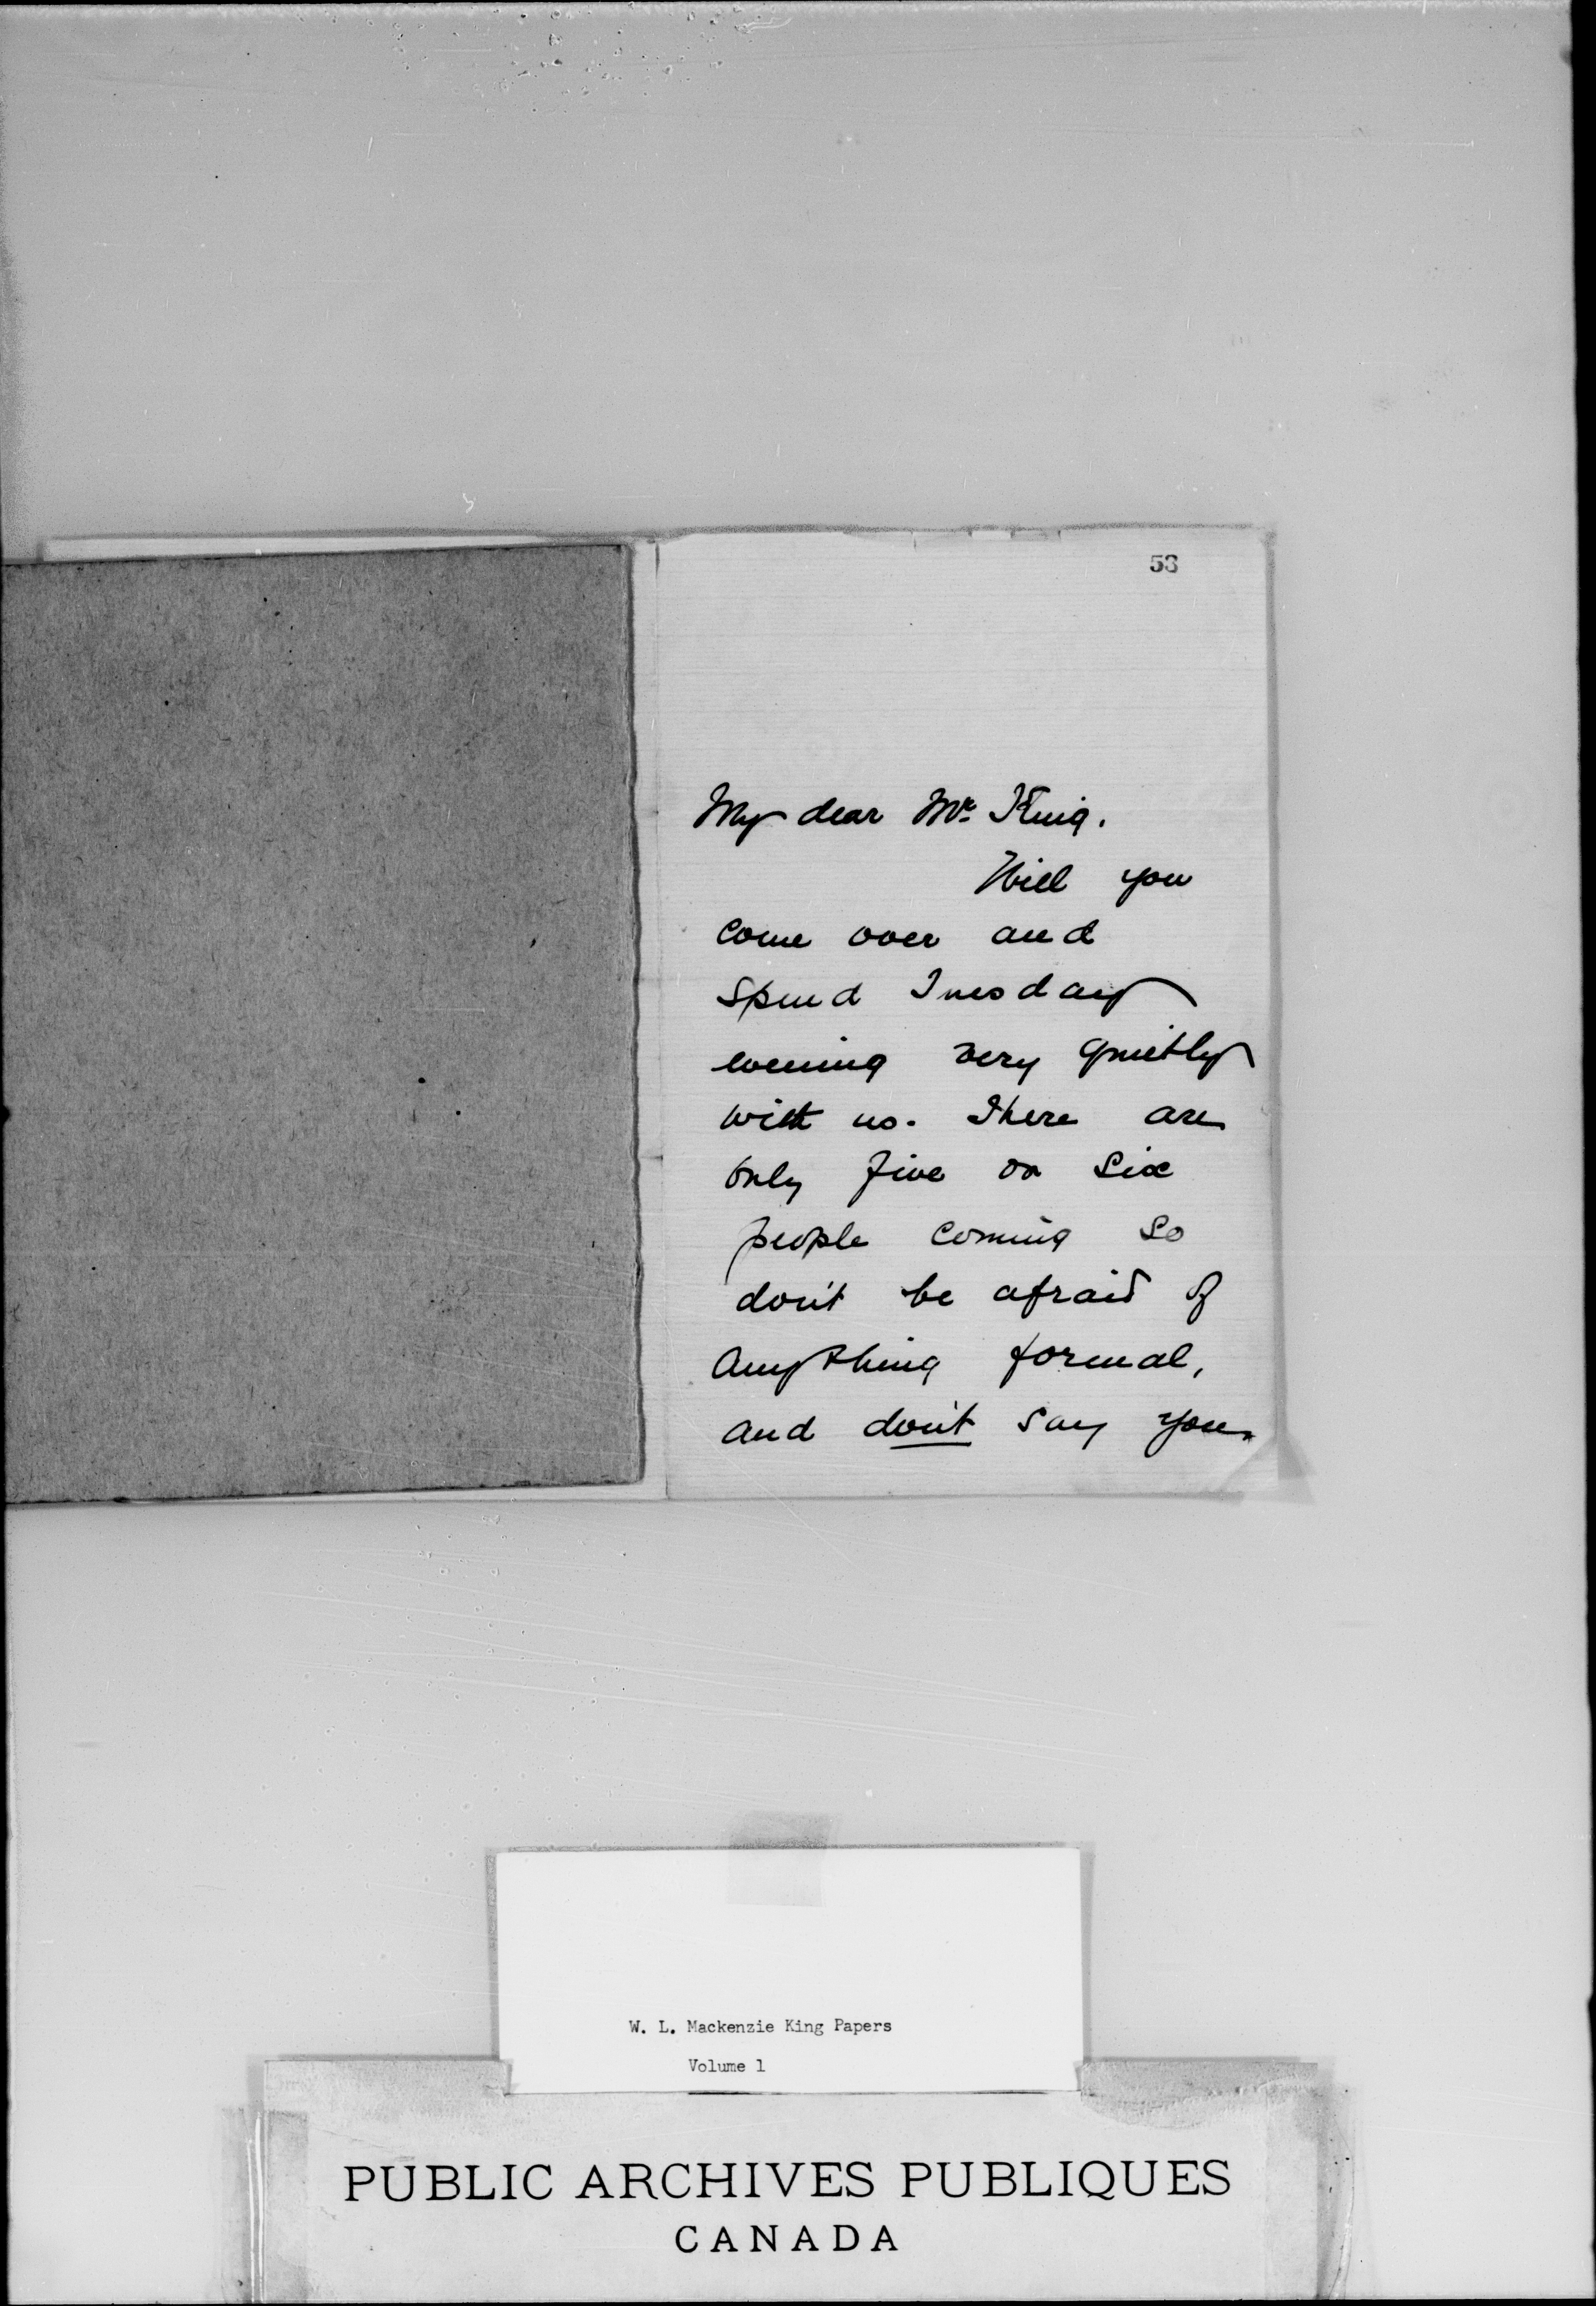 53
My dear Mr. King.
Will you
come over and
spend Tuesday
evening very quietly
with us. There are
only five or six
people coming so
don't be afraid of
anything formal,
and don't say you
W. L. Mackenzie King Papers
Volume 1
PUBLIC ARCHIVES PUBLIQUES
CANADA